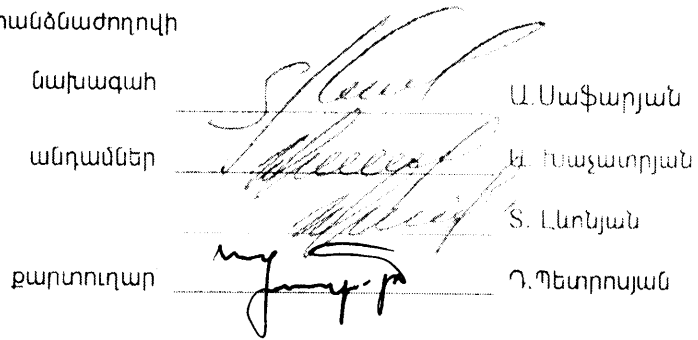 հանձնաժողովի
նախագահ Ա.Սաֆարյան
անդամներ Ա. Խաչատրյան
Տ. Լևոնյան
քարտուղար Դ.Պետրոսյան